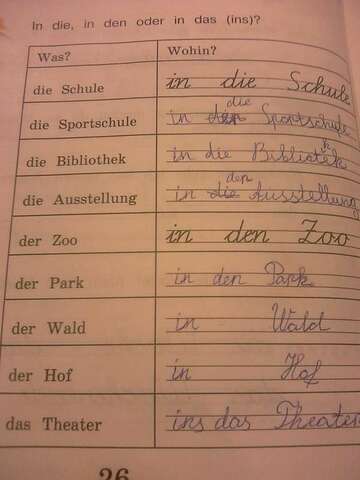 In die, in den oder in das (ins)?
Was? Wohin?
die Schule in die Schule
die
die Sportschule in den Sportschule
die Bibliothek in die Bibliotek
k
den
die Ausstellung in die Ausstellung
der Zoo in den Zoo
der Park in den Park
der Wald in Wald
der Hof in Hof
das Theater ins das Theater
26